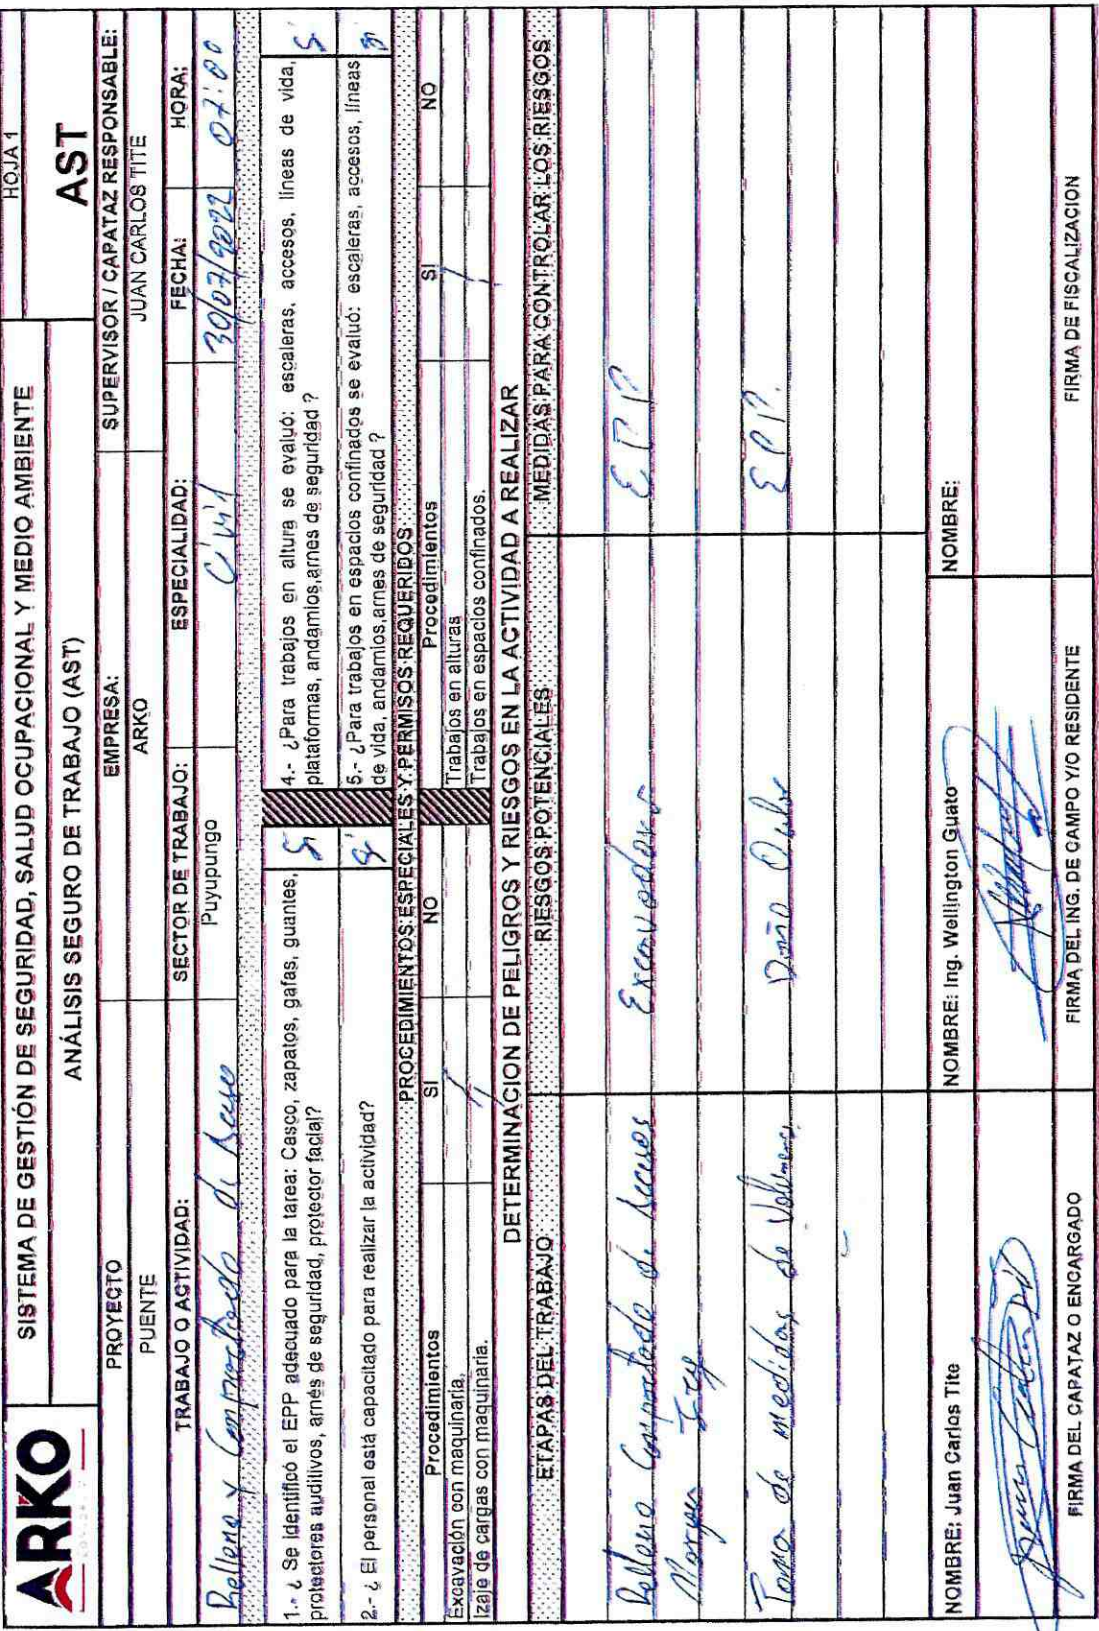 ARKO
SISTEMA DE GESTIÓN DE SEGURIDAD, SALUD OCUPACIONAL Y MEDIO AMBIENTE
HOJA 1
ANÁLISIS SEGURO DE TRABAJO (AST)
AST
PROYECTO
EMPRESA:
SUPERVISOR / CAPATAZ RESPONSABLE:
PUENTE
ARKO
JUAN CARLOS TITE
TRABAJO O ACTIVIDAD:
SECTOR DE TRABAJO:
ESPECIALIDAD:
FECHA:
HORA:
Relleno y Compactado de
Puyupungo
Civil
30/07/2022
07:00
1.- ¿ Se identificó el EPP adecuado para la tarea: Casco, zapatos, gafas, guantes,
protectores auditivos, arnés de seguridad, protector facial?
Si
4.- ¿Para trabajos en altura se evaluó: escaleras, accesos, líneas de vida,
plataformas, andamios,arnes de seguridad ?
Si
2.- ¿ El personal está capacitado para realizar la actividad?
Si
5.- ¿Para trabajos en espacios confinados se evaluó: escaleras, accesos, líneas
de vida, andamios,arnes de seguridad ?
Si
PROCEDIMIENTOS ESPECIALES Y PERMISOS REQUERIDOS
Procedimientos
SI
NO
Procedimientos
SI
NO
Excavación con maquinaria.
Trabajos en alturas
Izaje de cargas con maquinaria.
Trabajos en espacios confinados.
DETERMINACION DE PELIGROS Y RIESGOS EN LA ACTIVIDAD A REALIZAR
ETAPAS DEL TRABAJO
RIESGOS POTENCIALES
MEDIDAS PARA CONTROLAR LOS RIESGOS
Relleno Compactado de Accesos
Excavadora
EPP
Margen Izq
Toma de medidas de Volumenes
EPP.
NOMBRE: Juan Carlos Tite
NOMBRE: Ing. Wellington Guato
NOMBRE:
FIRMA DEL CAPATAZ O ENCARGADO
FIRMA DEL ING. DE CAMPO Y/O RESIDENTE
FIRMA DE FISCALIZACION